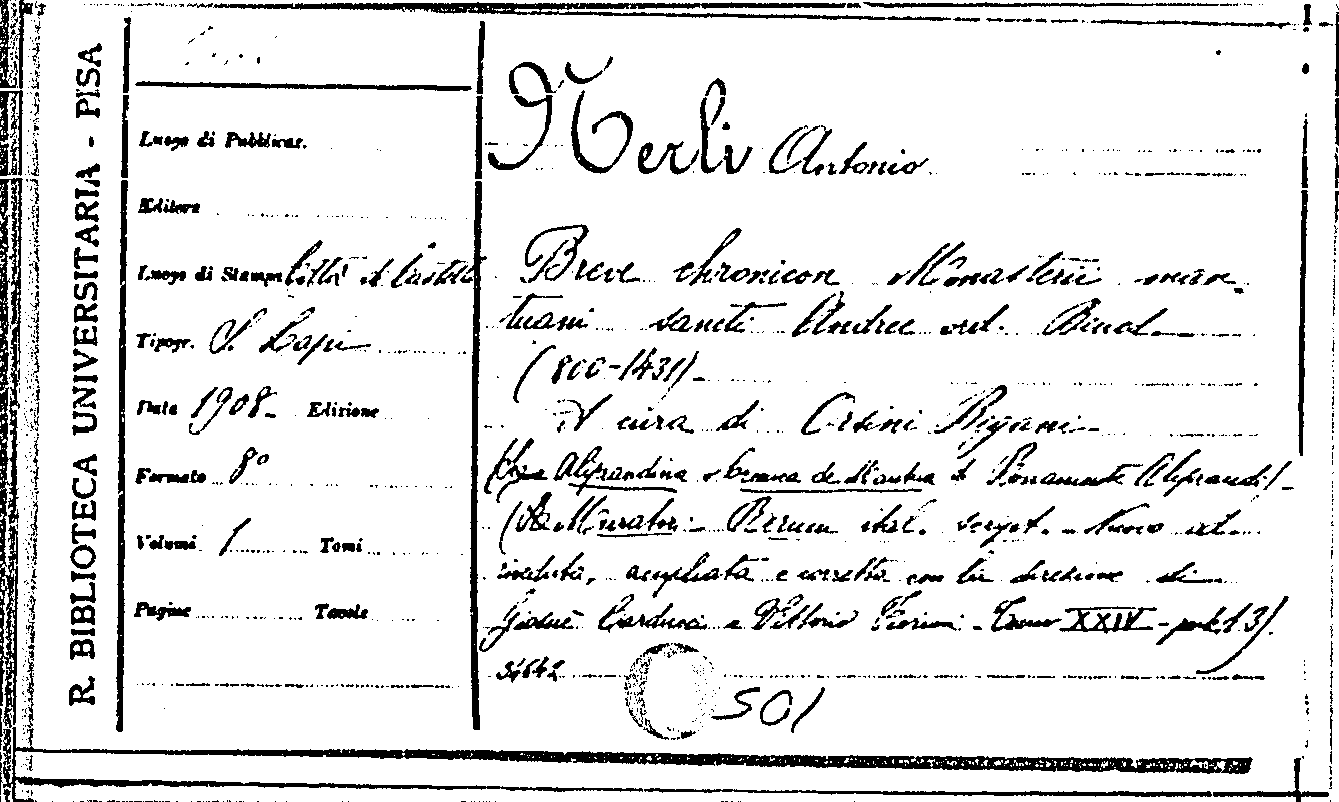 R. BIBLIOTECA UNIVERSITARIA - PISA
Luogo di Pubblicaz.
Editore
Luogo di Stampa Città di Castello
Tipogr. S. Lapi
Data 1908 - Edizione
Formato 8°
Volumi 1 Tomi
Pagine Tavole
Nerli Antonio
Breve chronicon Monasterii man-
tuani sancti Andree ord. Bened.
(800-1431) -
A cura di Orsini Begani -
Aliprandina Cronaca de Mantua di Bonamente Aliprandi) -
(In Muratori: Rerum ital. script. - Nuova ed.
riveduta, ampliata e corretta con la direzione di
Giosuè Carducci e Vittorio Fiorini - Tomo XXIV - part. 13).
34642
501